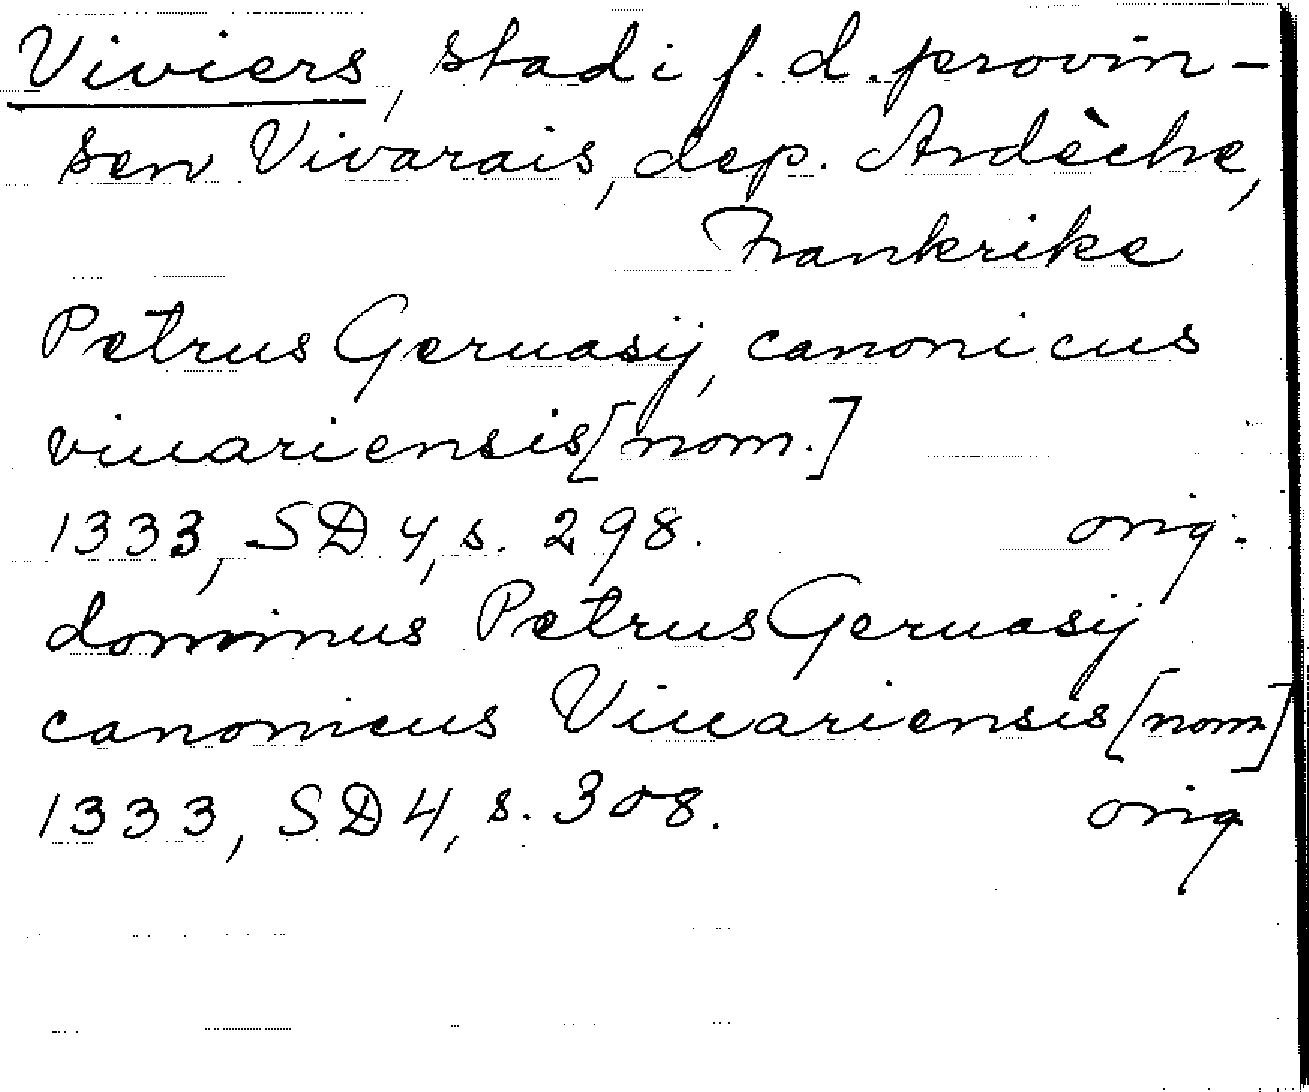 Viviers, stad i f. d. provin-
sen Vivarais, dep. Ardèche,
Frankrike
Petrus Geruasij, canonicus
viuariensis [nom.]
1333, SD 4, s. 298. orig.
dominus Petrus Geruasij
canonicus Viuariensis [nom]
1333, SD 4, s. 308. orig